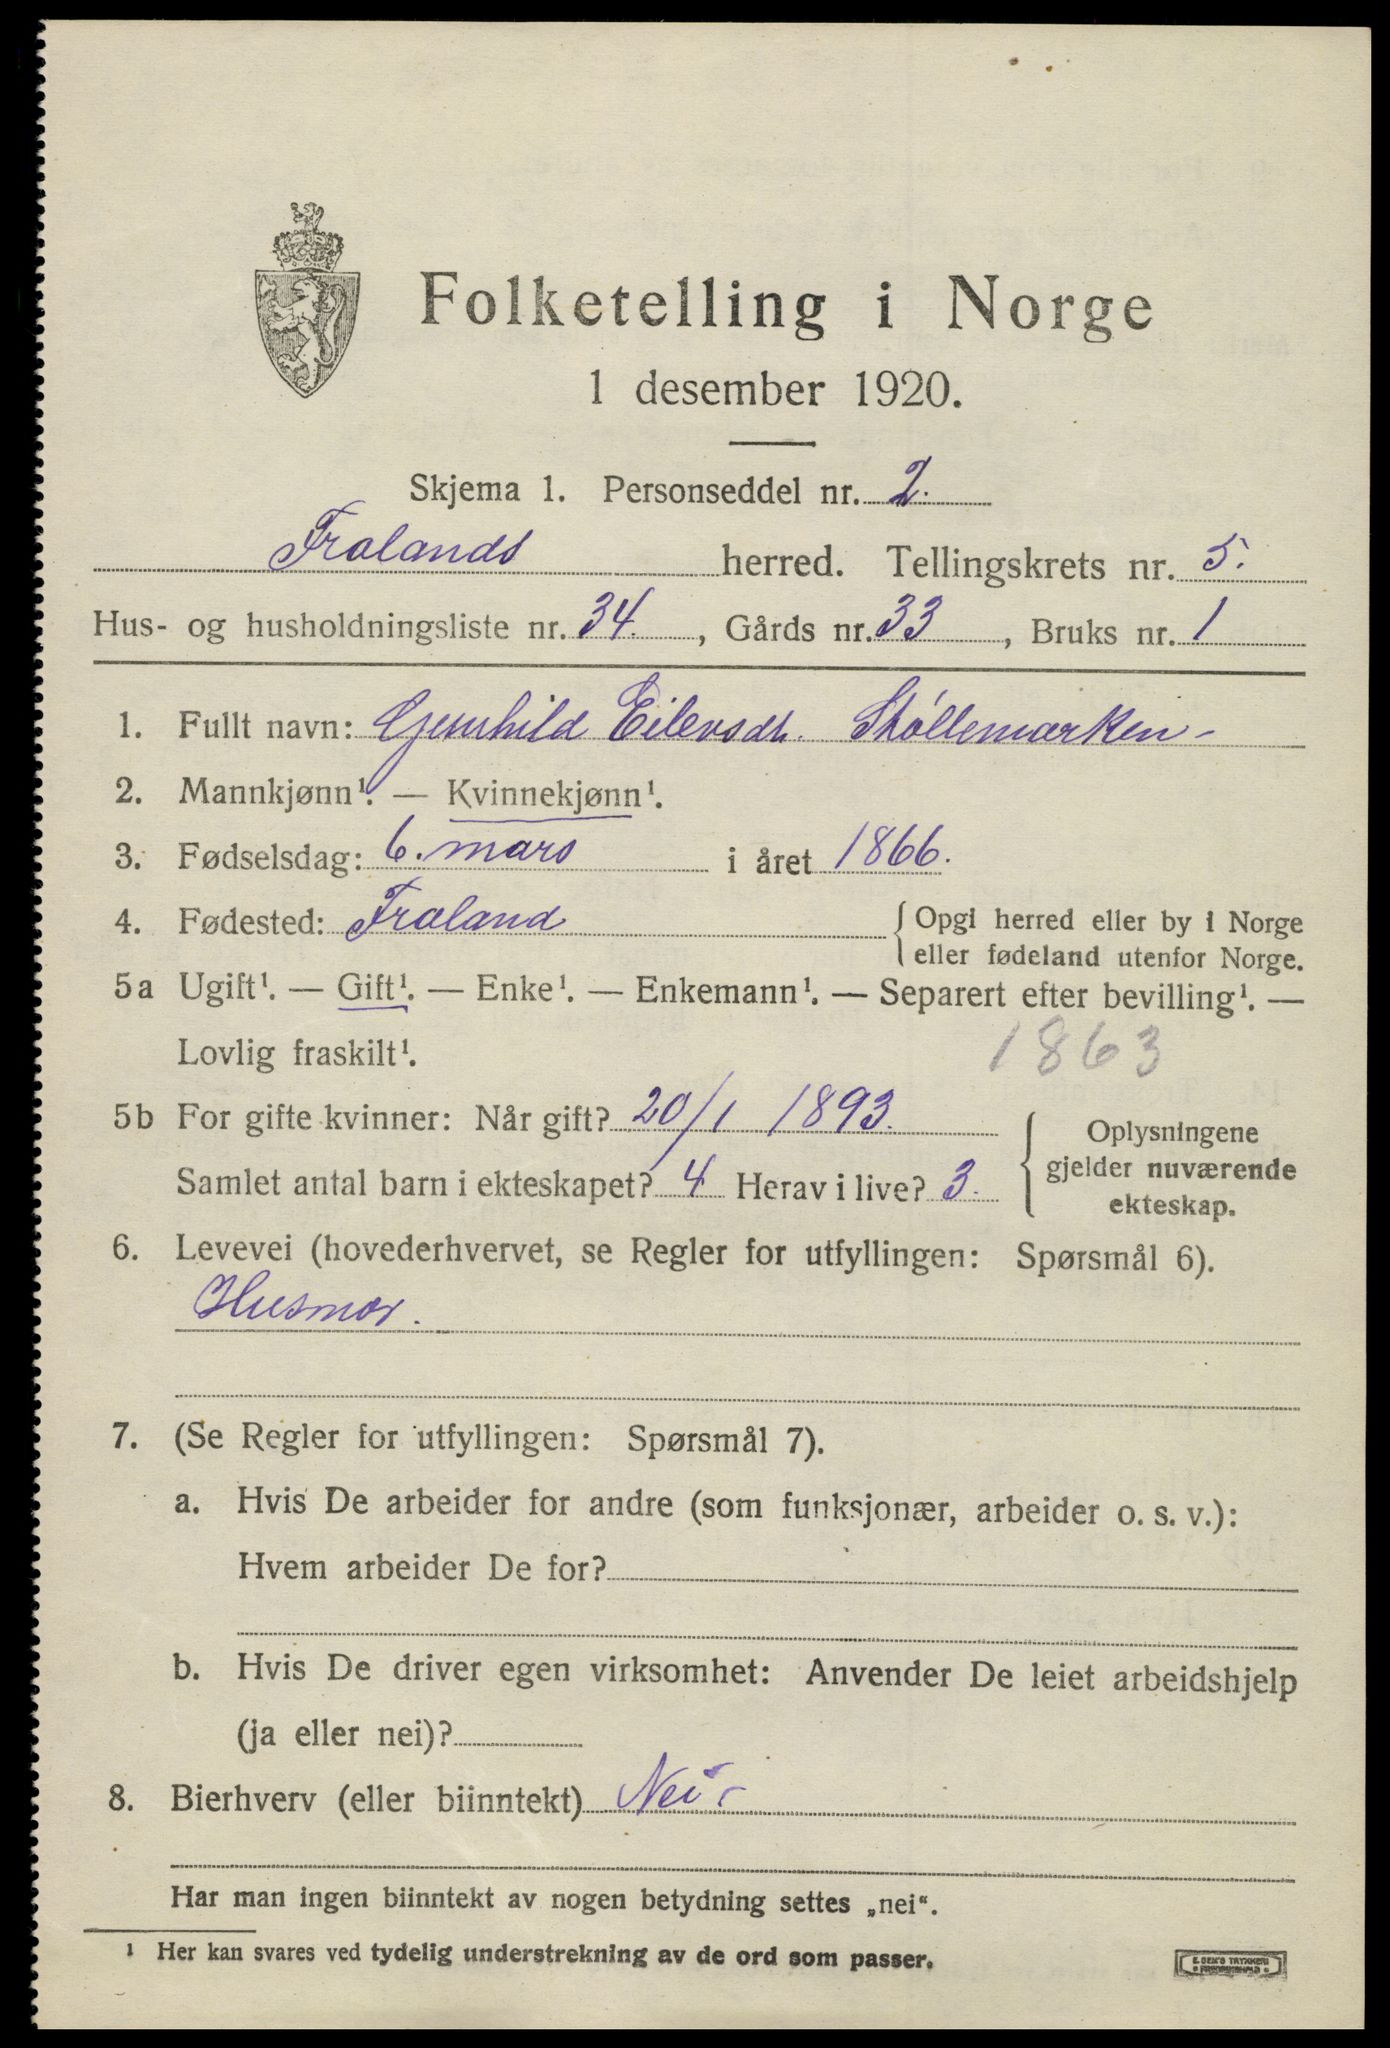 Folketelling i Norge
1 desember 1920.
Skjema 1. Personseddel nr. 2.
Frolands herred. Tellingskrets nr. 5.
Hus- og husholdningsliste nr. 34., Gårds nr. 33, Bruks nr. 1
1. Fullt navn: Gunhild Eilevsdt. Stöllemarken -
2. Mannkjønn¹. — Kvinnekjønn¹.
3. Fødselsdag: 6. mars i året 1866.
4. Fødested: Froland { Opgi herred eller by i Norge
eller fødeland utenfor Norge.
5a Ugift¹. — Gift¹. — Enke¹. — Enkemann¹. — Separert efter bevilling¹. —
Lovlig fraskilt¹. 1863
5b For gifte kvinner: Når gift? 20/1 1893. { Oplysningene
gjelder nuværende
Samlet antal barn i ekteskapet? 4 Herav i live? 3. ekteskap.
6. Levevei (hovederhvervet, se Regler for utfyllingen: Spørsmål 6).
Husmor.
7. (Se Regler for utfyllingen: Spørsmål 7).
a. Hvis De arbeider for andre (som funksjonær, arbeider o. s. v.):
Hvem arbeider De for?
b. Hvis De driver egen virksomhet: Anvender De leiet arbeidshjelp
(ja eller nei)?
8. Bierhverv (eller biinntekt) Nei -
Har man ingen biinntekt av nogen betydning settes „nei“.
¹ Her kan svares ved tydelig understrekning av de ord som passer.